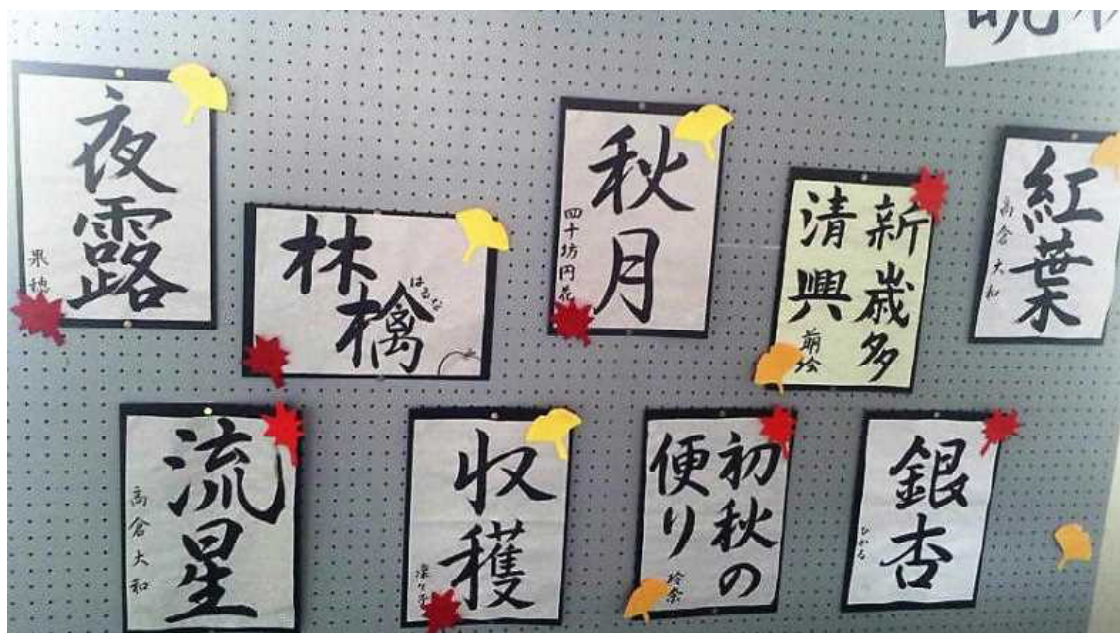 夜露
果穂
林檎
はるな
秋月
四十坊円花
新歳多
清興
萠絵
紅葉
高倉大和
流星
高倉大和
収穫
初秋の
便り
玲奈
銀杏
ひかる